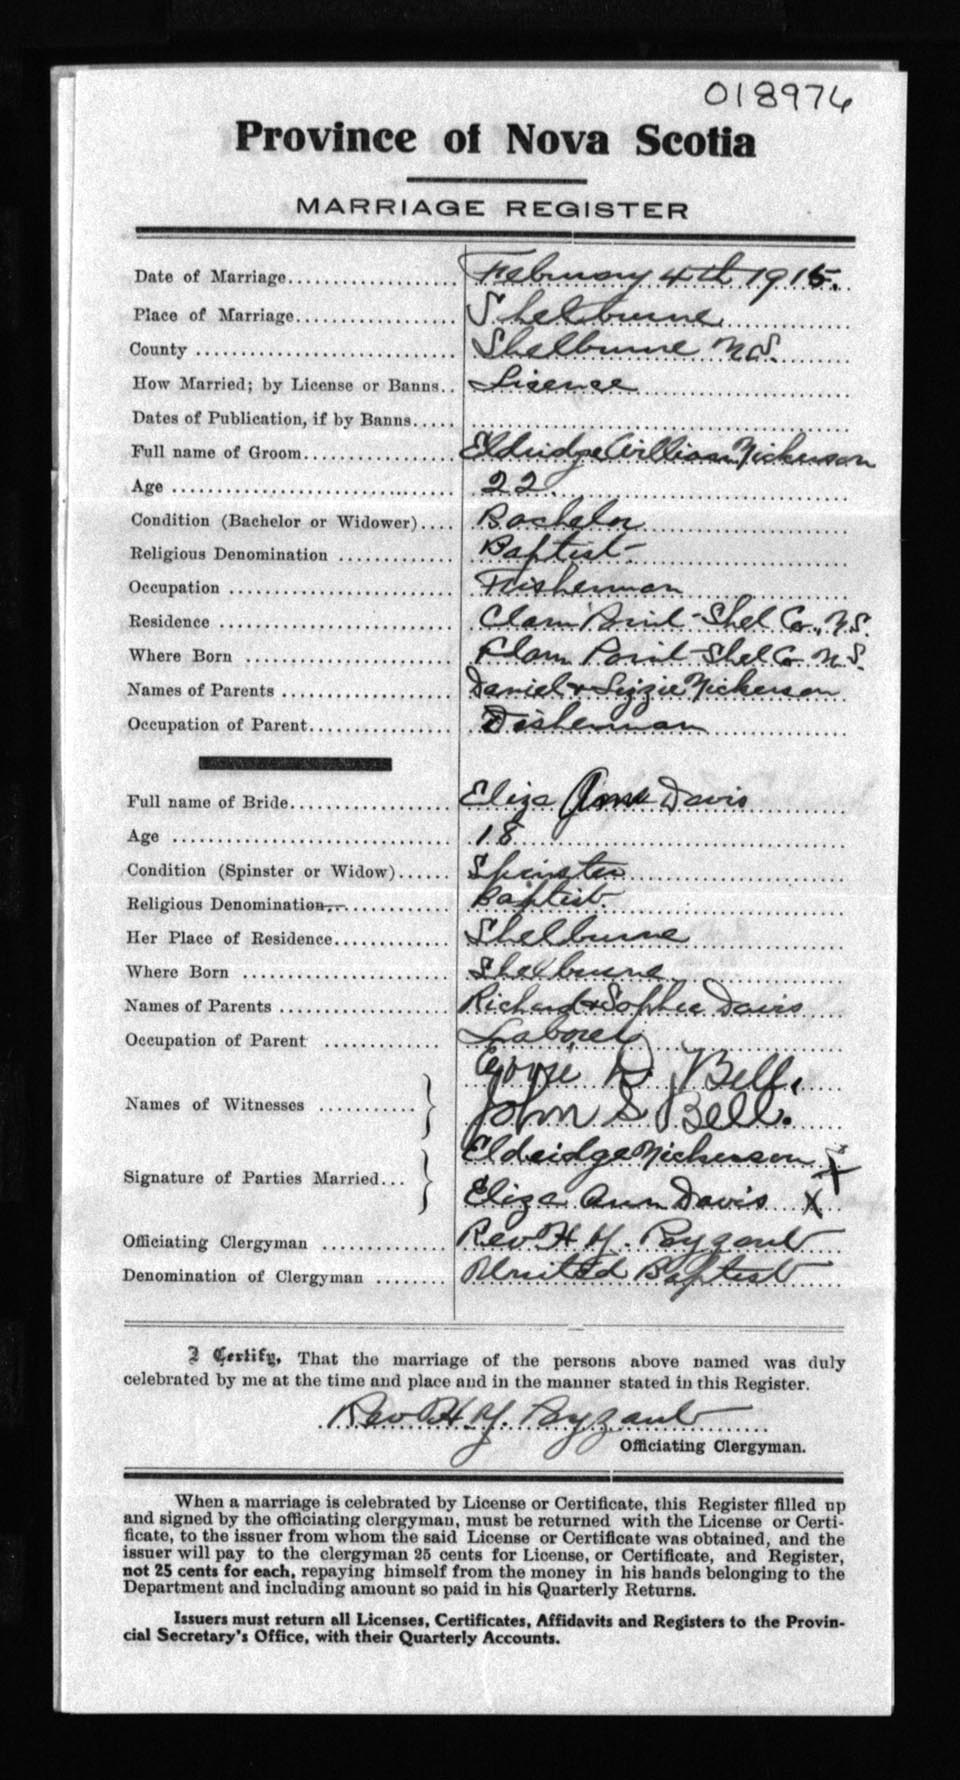 018976
Province of Nova Scotia
MARRIAGE REGISTER
Date of Marriage.................... February 4th 1915.
Place of Marriage................... Shelburne
County .............................. Shelburne N.S.
How Married; by License or Banns.. Lisense
Dates of Publication, if by Banns.....
Full name of Groom.................. Eldridge William Nickerson
Age .................................. 22.
Condition (Bachelor or Widower).... Bachelor
Religious Denomination .............. Baptist
Occupation .......................... Fisherman
Residence ........................... Clam Point Shel Co., N.S.
Where Born .......................... Clam Point Shel Co N.S.
Names of Parents .................... Daniel & Lizzie Nickerson
Occupation of Parent................. Fisherman
Full name of Bride................... Eliza Ann Davis
Age .................................. 18
Condition (Spinster or Widow)...... Spinster
Religious Denomination............... Baptist
Her Place of Residence............... Shelburne
Where Born .......................... Shelburne
Names of Parents .................... Richard & Sophia Davis
Occupation of Parent ............. Laborer
D Bell.
Names of Witnesses ...........
John S Bell.
Eldridge Nickerson X
Signature of Parties Married...
Eliza Ann Davis X
Officiating Clergyman .............. Rev H. Y. Payzant
Denomination of Clergyman ........ United Baptist
I Certify, That the marriage of the persons above named was duly
celebrated by me at the time and place and in the manner stated in this Register.
Rev H. Y. Payzant
Officiating Clergyman.
When a marriage is celebrated by License or Certificate, this Register filled up
and signed by the officiating clergyman, must be returned with the License or Certi-
ficate, to the issuer from whom the said License or Certificate was obtained, and the
issuer will pay to the clergyman 25 cents for License, or Certificate, and Register,
not 25 cents for each, repaying himself from the money in his hands belonging to the
Department and including amount so paid in his Quarterly Returns.
Issuers must return all Licenses, Certificates, Affidavits and Registers to the Provin-
cial Secretary's Office, with their Quarterly Accounts.